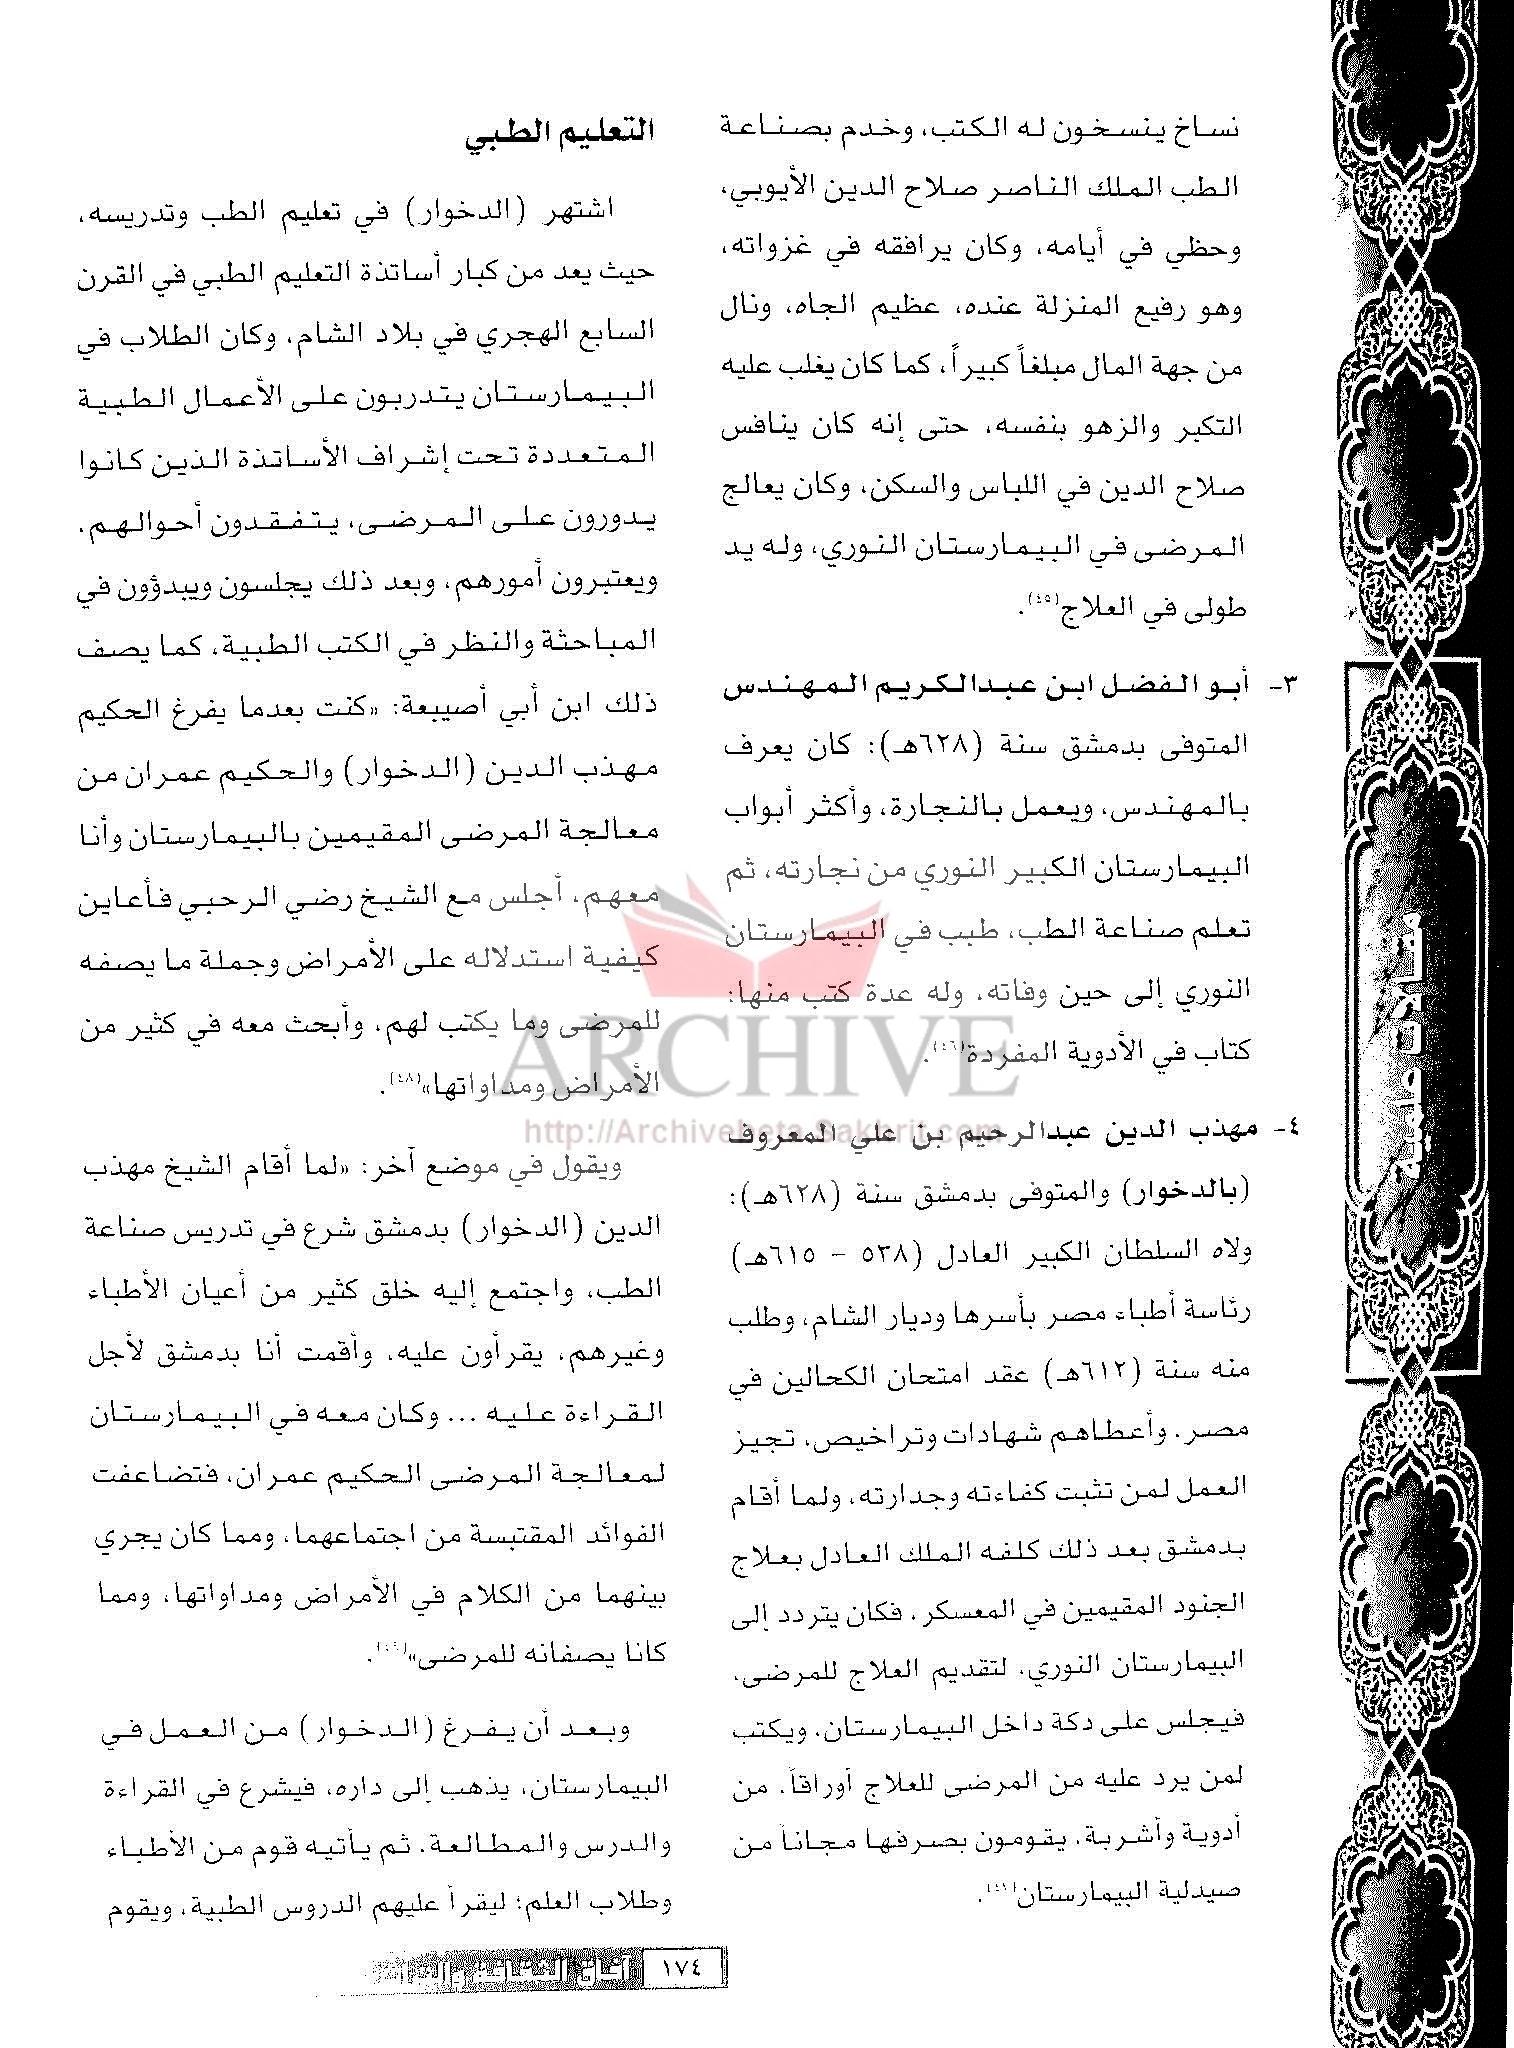 نساخ ينسخون له الكتب، وخدم بصناعة
الطب الملك الناصر صلاح الدين الأيوبي،
وحظي في أيامه، وكان يرافقه في غزواته،
وهو رفيع المنزلة عنده، عظيم الجاه، ونال
من جهة المال مبلغاً كبيراً، كما كان يغلب عليه
التكبر والزهو بنفسه، حتى إنه كان ينافس
صلاح الدين في اللباس والسكن، وكان يعالج
المرضى في البيمارستان النوري، وله يد
طولى في العلاج(٤٥).
٣- أبو الفضل ابن عبدالكريم المهندس
المتوفى بدمشق سنة (٦٢٨هـ): كان يعرف
بالمهندس، ويعمل بالنجارة، وأكثر أبواب
البيمارستان الكبير النوري من نجارته، ثم
تعلم صناعة الطب، طبب في البيمارستان
النوري إلى حين وفاته، وله عدة كتب منها:
كتاب في الأدوية المفردة(٤٦).
٤- مهذب الدين عبدالرحيم بن علي المعروف
(بالدخوار) والمتوفى بدمشق سنة (٦٢٨هـ):
ولاه السلطان الكبير العادل (٥٣٨ - ٦١٥هـ)
رئاسة أطباء مصر بأسرها وديار الشام، وطلب
منه سنة (٦١٢هـ) عقد امتحان الكحالين في
مصر. وأعطاهم شهادات وتراخيص، تجيز
العمل لمن تثبت كفاءته وجدارته، ولما أقام
بدمشق بعد ذلك كلفه الملك العادل بعلاج
الجنود المقيمين في المعسكر، فكان يتردد إلى
البيمارستان النوري، لتقديم العلاج للمرضى،
فيجلس على دكة داخل البيمارستان، ويكتب
لمن يرد عليه من المرضى للعلاج أوراقاً، من
أدوية وأشربة، يقومون بصرفها مجاناً من
صيدلية البيمارستان
التعليم الطبي
اشتهر (الدخوار) في تعليم الطب وتدريسه،
حيث يعد من كبار أساتذة التعليم الطبي في القرن
السابع الهجري في بلاد الشام، وكان الطلاب في
البيمارستان يتدربون على الأعمال الطبية
المتعددة تحت إشراف الأساتذة الذين كانوا
يدورون على المرضى، يتفقدون أحوالهم،
ويعتبرون أمورهم، وبعد ذلك يجلسون ويبدؤون في
المباحثة والنظر في الكتب الطبية، كما يصف
ذلك ابن أبي أصيبعة: «كنت بعدما يفرغ الحكيم
مهذب الدين (الدخوار) والحكيم عمران من
معالجة المرضى المقيمين بالبيمارستان وأنا
معهم، أجلس مع الشيخ رضي الرحبي فأعاين
كيفية استدلاله على الأمراض وجملة ما يصفه
للمرضى وما يكتب لهم، وأبحث معه في كثير من
الأمراض ومداواتها»(٤٨).
ويقول في موضع آخر: «لما أقام الشيخ مهذب
الدين (الدخوار) بدمشق شرع في تدريس صناعة
الطب، واجتمع إليه خلق كثير من أعيان الأطباء
وغيرهم، يقرأون عليه، وأقمت أنا بدمشق لأجل
القراءة عليه ... وكان معه في البيمارستان
لمعالجة المرضى الحكيم عمران، فتضاعفت
الفوائد المقتبسة من اجتماعهما، ومما كان يجري
بينهما من الكلام في الأمراض ومداواتها، ومما
كانا يصفانه للمرضى»
وبعد أن يفرغ (الدخوار) من العمل في
البيمارستان، يذهب إلى داره، فيشرع في القراءة
والدرس والمطالعة، ثم يأتيه قوم من الأطباء
وطلاب العلم؛ ليقرأ عليهم الدروس الطبية، ويقوم
مقالات طبية
ARCHIVE
http://Archivebeta.Sakhrit.com
١٧٤
آفاق الثقافة والتراث